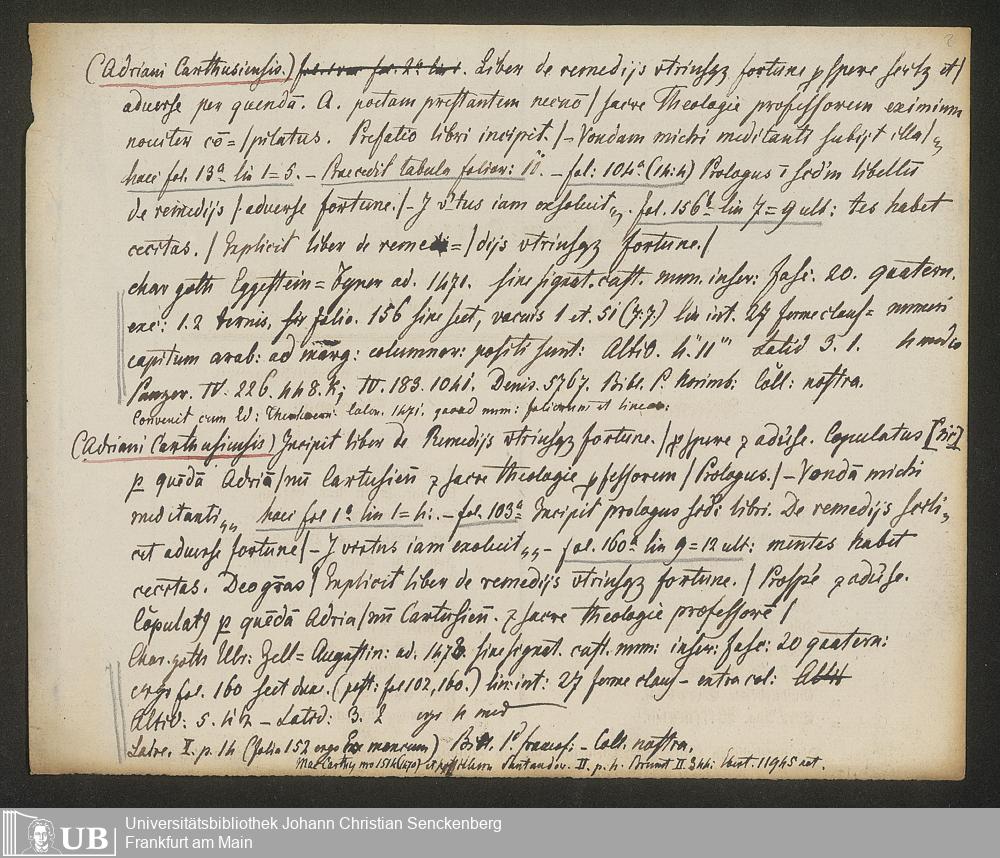 2
(Adriani Carthusiensis.) Liber de remedijs vtriusqz fortune pspere scz et/
aduerse per quendā. A. poetam prestantem necnō / sacre Theologie professorem eximium
nouiter cō=/pilatus. Prefatio libri incipit. /- Vondam michi meditanti subijt illa/„
haec fol. 13a lin 1=5. - Praecedit tabula folior: 10. - fol: 104a (14:4) Prologus ī sedm libellū
de remedijs / aduerse fortune. /- J v'tus iam exoleuit„. fol. 156b lin 7=9 ult: tes habet
cecitas. / Explicit liber de remedi=/dijs vtriusqz fortune./
char goth Eggestein= Typner ad. 1471. sine signat. cast. num. inser: fasc. 20. quatern.
exc: 1.2 ternis, sir folio. 156 sine sect, vacuis 1 et. 51 (7:7.) lin int. 27 forme claus= numeri
capitum arab: ad marg: columnar: positi sunt: Altid. 4" 11"' Latid 3. 1. 4 medio
Panzer. IV. 226. 448. k; IV. 183. 1041. Denis. 5767. Bibl. P. Norimb: Coll: nostra.
Convenit cum Ed: Colon. 1471. quoad num: foliorum et linear:
(Adriani Carthusiensis) Incipit liber de Remedijs vtriusqz fortune. /pspere z aduse. Copulatus [sic]
p quēdā Adriā/nū Cartusień z sacre theologie pfessorem / Prologus./ - Vondā michi
meditanti„„ haec fol 1a lin 1=4:. - fol. 103a Incipit prologus scdi libri. De remedijs scili„
cet aduerse fortune/ - J virtus iam exoleuit„„ - fol. 160a lin 9=12 ult: mentes habet
cecitas. Deo gras / Explicit liber de remedijs vtriusqz fortune. / Prospe z aduse.
Cōpulatg p quēdā Adria/nū Cartusień. z sacre theologie professorē /
Char. goth Ulr: Zell= Augustin: ad. 1473. sine signat. cast. num: inser: fasc: 20 quatern:
ergo fol. 160 sect duae. (pest: fol 102, 160.) lin: int: 27 forme claus - extra col:
Altid: 5. 4 1/2 - Latid: 3. 2 ergo 4 med
Laire. I. p. 14 (folia 152 ergo Ex mancum) Bibl. P. francof: - Coll. nostra.
Mac Carthy no 1514 (1470) Santander. II. p. 4. Brunet II. 344: Ebert. 11945 not.
UB
Universitätsbibliothek Johann Christian Senckenberg
Frankfurt am Main